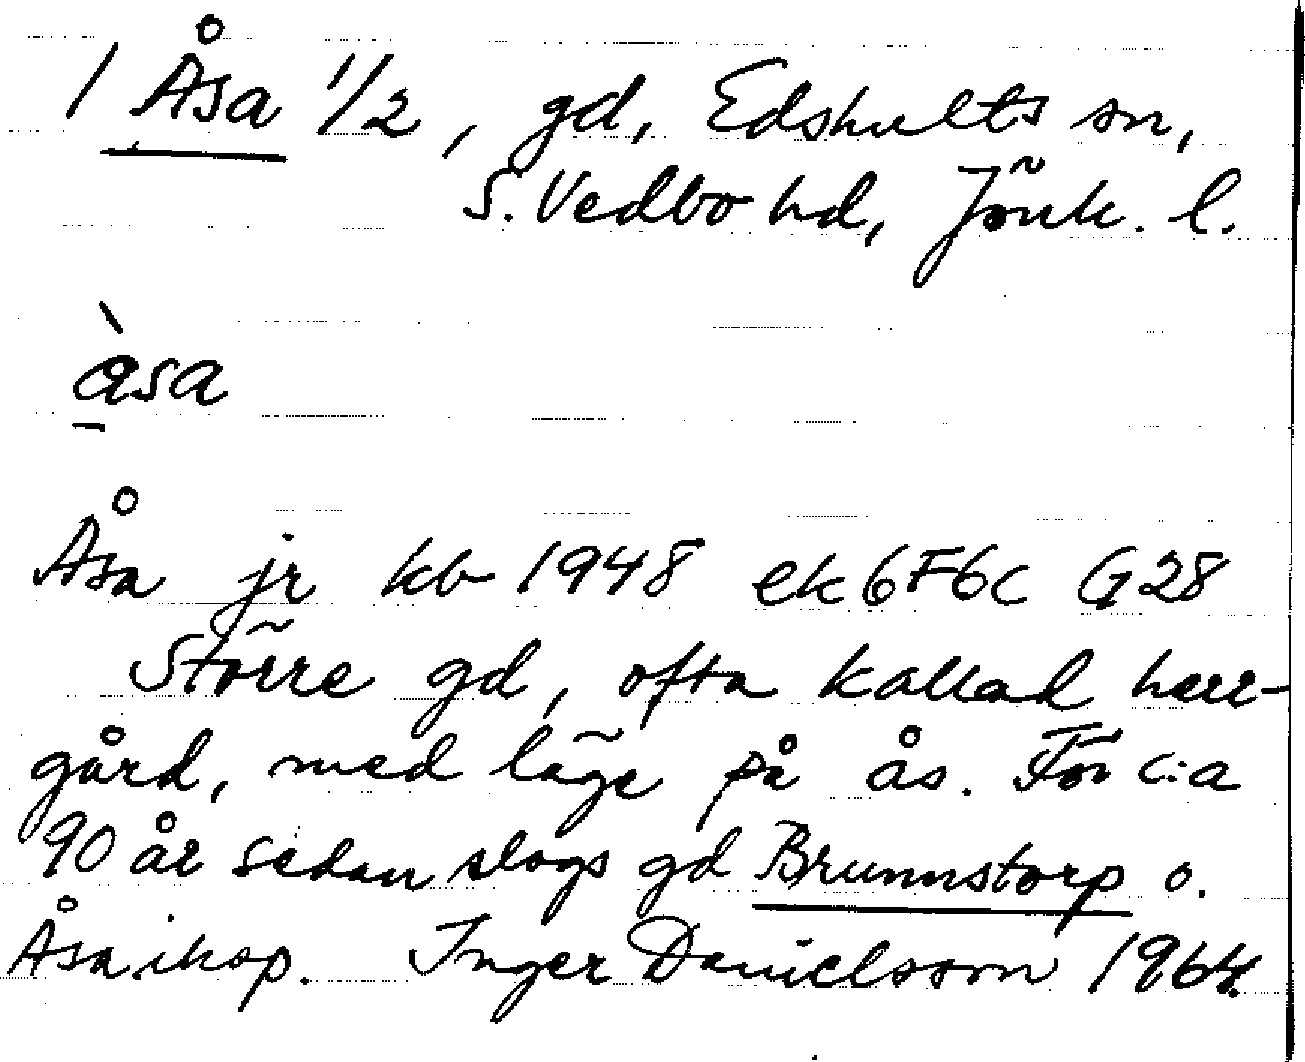 1 Åsa 1/2, gd, Edshults sn,
S. Vedbo hd, Jönk. l.
`åsa
Åsa jr kb 1948 ek 6F6c G28
Större gd, ofta kallad herr-
gård, med läge på ås. För c:a
90 år sedan slogs gd Brunnstorp o.
Åsa ihop. Inger Danielsson 1964.